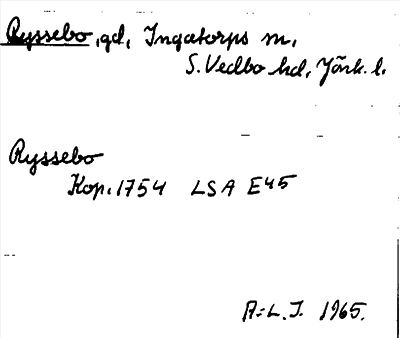 Ryssebo, gd, Ingatorps sn,
S. Vedbo hd, Jönk. l.
Ryssebo
Kop. 1754 LSA E45
A:L.J. 1965.